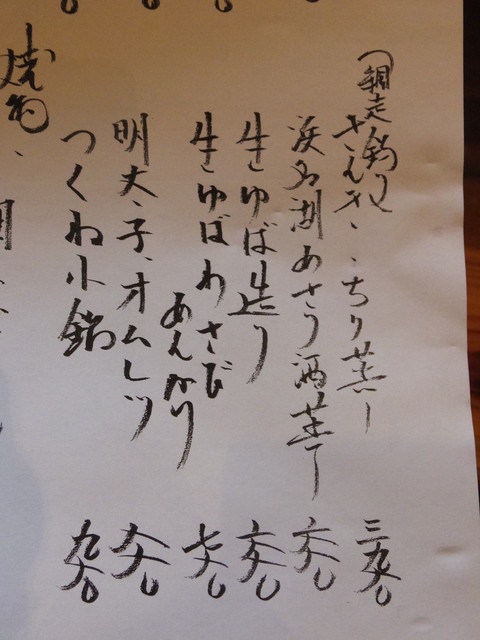 網走釣り
きんき・ちり蒸し 三九八〇
浜名湖あさり酒蒸し 六八〇
生ゆば造り 六八〇
生ゆばわさび
あんかけ 七八〇
明太子オムレツ 八八〇
つくね小鍋 九八〇
焼物